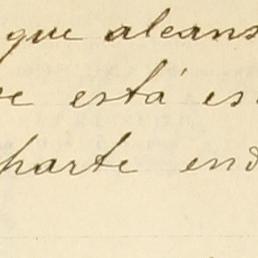 que alcans
e está es
parte end